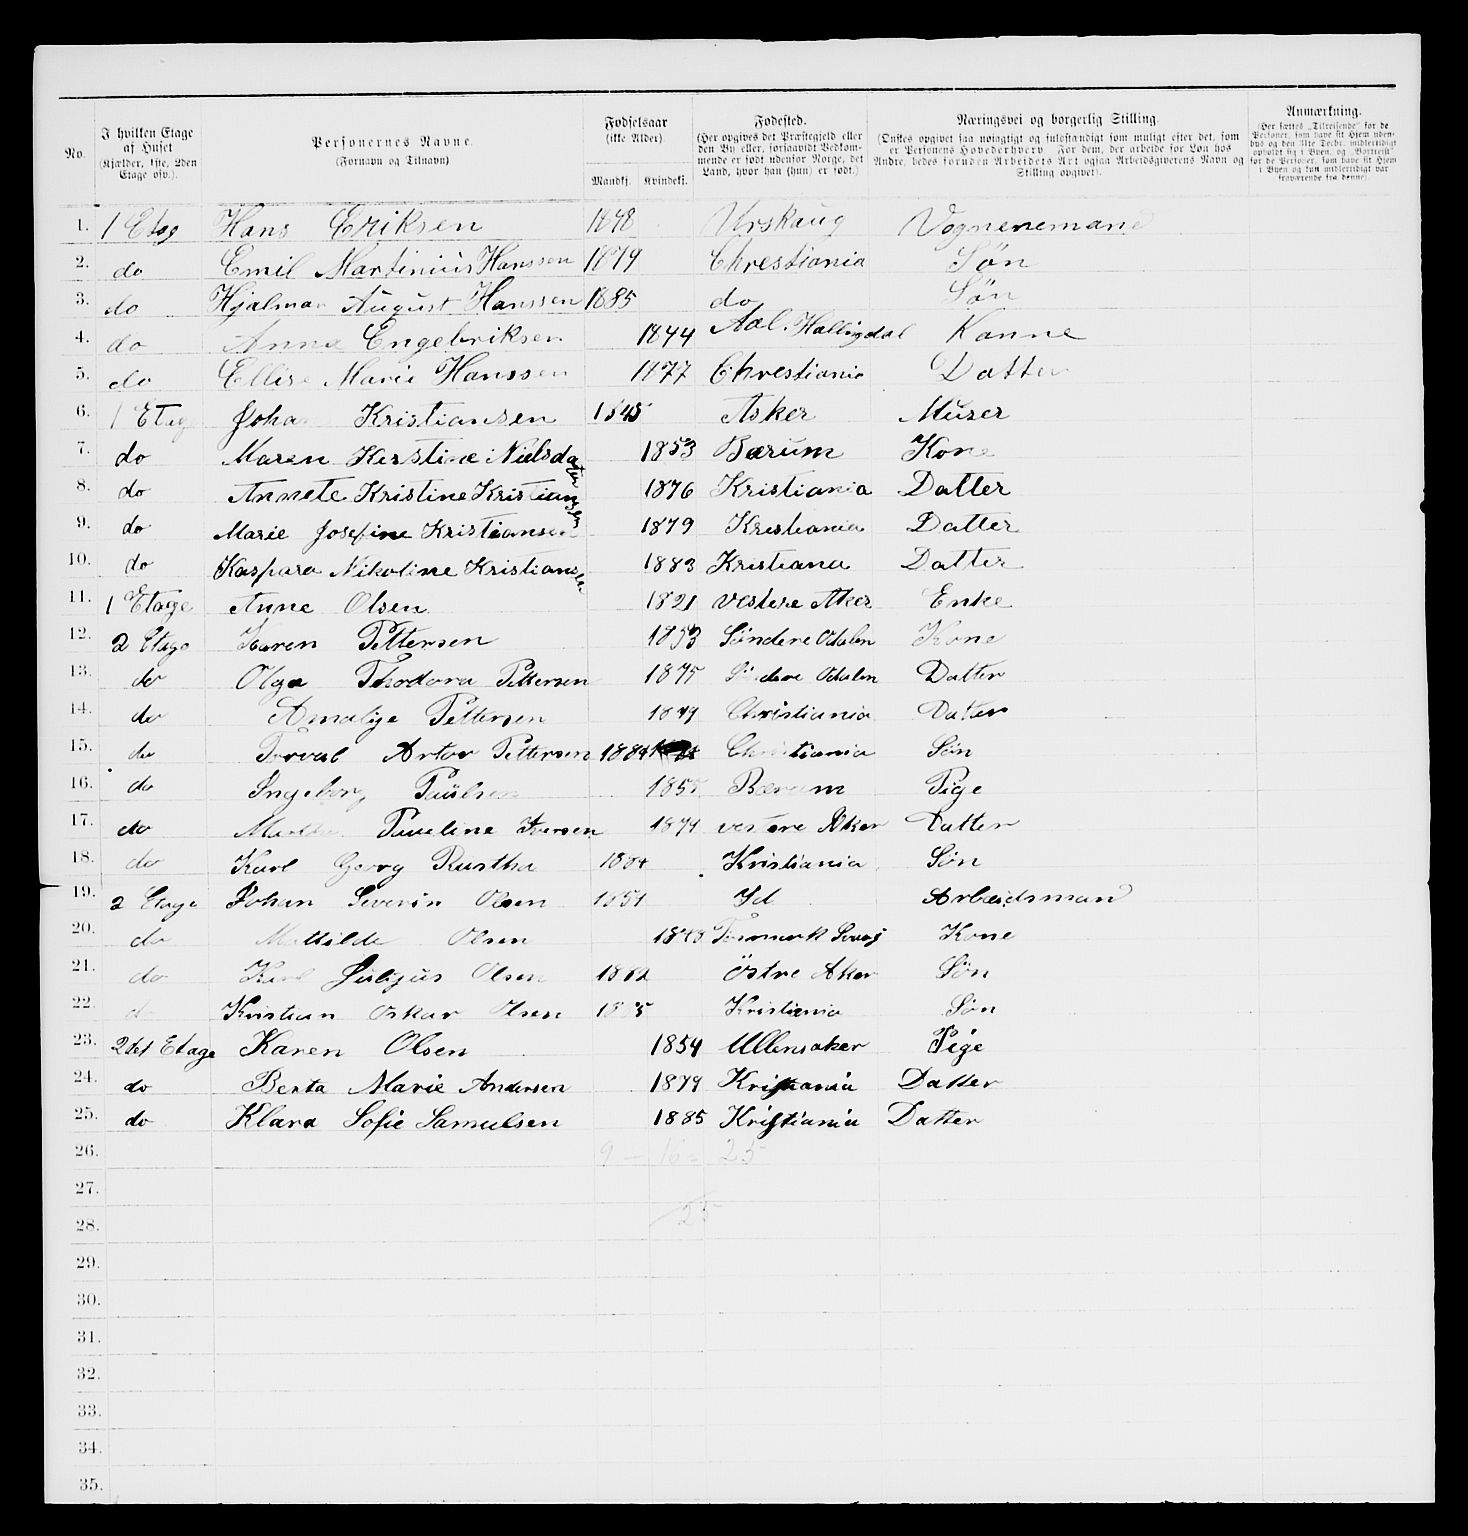 No.
I hvilken Etage af Huset (Kjælder, 1ste, 2den Etage osv.).
Personernes Navne. (Fornavn og Tilnavn)
Fødselsaar (ikke Alder).
Mandkj. Kvindekj.
Fødested. (Her opgives det Præstegjeld eller den By eller, forsaavidt Vedkommende er født udenfor Norge, det Land, hvor han (hun) er født.)
Næringsvei og borgerlig Stilling. (Ønskes opgivet saa nøiagtigt og fuldstændigt som muligt efter det, som er Personens Hovederhverv. For dem, der arbeide for Løn hos Andre, bedes foruden Arbeidets Art ogsaa Arbeidsgiverens Navn og Stilling opgivet).
Anmærkning. (Her sættes „Tilreisende“ for de Personer, som have sit Hjem udenbys og den 31te Decbr. midlertidigt opholdt sig i Byen, og „Bortreist“ for de Personer, som have sit Hjem i Byen og kun midlertidigt var fraværende fra denne).
1. 1 Etag Hans Eriksen 1848 Urskaug Vognenemane
2. do Emil Martinius Hanssen 1879 Chrestiania Søn
3. do Hjalmar August Hanssen 1885 do Søn
4. do Anna Engebriksen 1844 Aal. Hallingdal Kanne
5. do Ellise Marie Hanssen 1877 Chrestiania Datter
6. 1 Etag Johan Kristiansen 1845 Asker Muser
7. do Maren Kerstine Nielsdatter 1853 Bærum Kone
8. do Annete Kristine Kristiansen 1876 Kristiania Datter
9. do Marie Josefine Kristiansen 1879 Kristiania Datter
10. do Kaspara Nikoline Kristiansen 1883 Kristiana Datter
11. 1 Etage Anne Olsen 1821 vestere Aker Enke
12. 2 Etage Karen Pettersen 1853 Søndere Odalen Kone
13. do Olga Thodora Pettersen 1875 Søndere Odalen Datter
14. do Amalije Pettersen 1879 Christiania Datter
15. do Torval Artor Pettersen 1884 Christiania Søn
16. do Ingeborg Paulsen 1855 Bærum Pige
17. do Pauline Iversen 1874 vestere Aker Datter
18. do Karl Georg Rustha 1884 Kristiania Søn
19. 2 Etage Johan Severin Olsen 1851 Id Arbeidsmand
20. do Mathilde Olsen 1848 Kone
21. do Karl Julijus Olsen 1882 Østre Aker Søn
22. do Kristian Oskar Olsen 1885 Kristiania Søn
23. 2det Etage Karen Olsen 1854 Ullensaker Pige
24. do Berta Marie Andersen 1879 Kristiania Datter
25. do Klara Sofie Samulsen 1885 Kristiania Datter
26. 9 – 16 = 25
27.
28. 25
29.
30.
31.
32.
33.
34.
35.